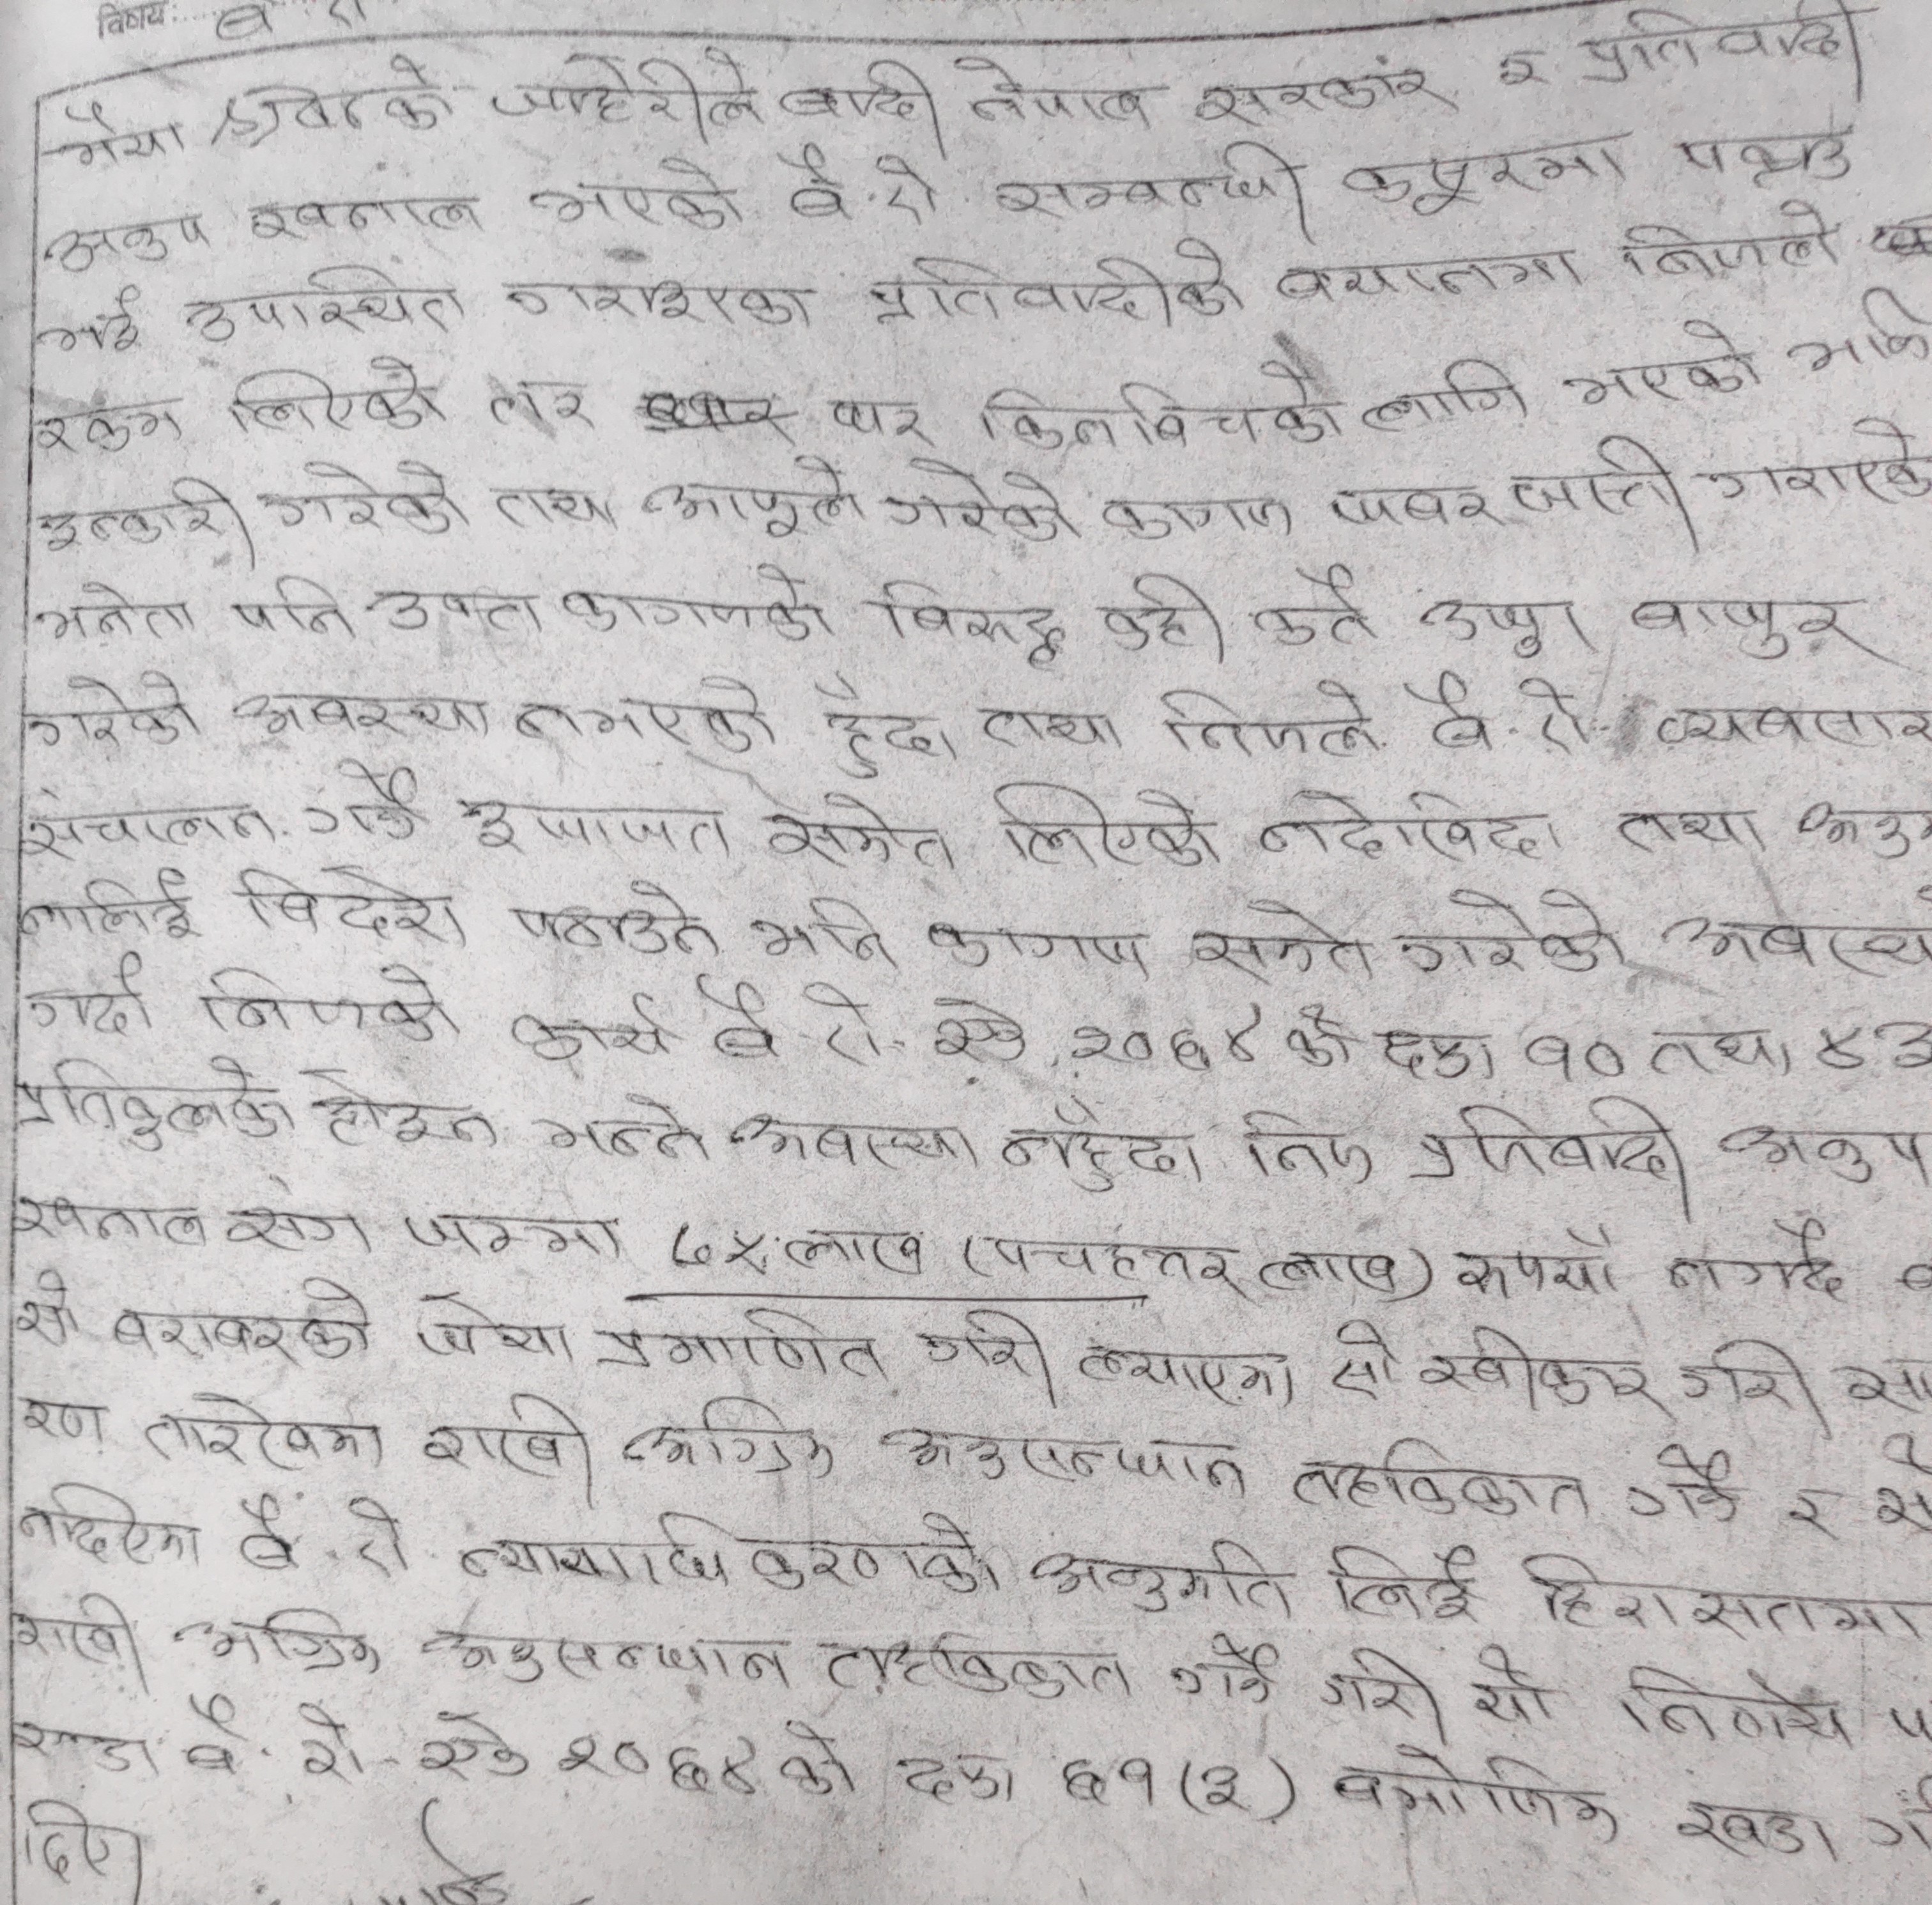 विषय: बै. रो
मैया श्रेष्ठको जाहेरीले वादी नेपाल सरकार र प्रतिवादी
अनुप खनाल भएको बै. रो. सम्बन्धी कुसूरमा पक्राउ
भई उपस्थित गराइएका प्रतिवादीको बयानमा निजले
रकम लिएको तर घर किनबिचको लागि भएको भनि
इन्कारी गरेको तथा आफूले गरेको कागज जबरजस्ती गराएको
भनेता पनि उक्त कागजको विरुद्ध कही कतै उजुर बाजुर
गरेको अवस्था नभएको हुँदा तथा निजले बै. रो. व्यवसाय
संचालन गर्न इजाजत समेत लिएको नदेखिदा तथा
लाई विदेश पठाउने भनि कागज समेत गरेको अवस्था
गर्दा निजको कार्य बै. रो. ऐन, २०६४ को दफा १० तथा ४३
प्रतिकुलको होइन भन्ने अवस्था नहुँदा निज प्रतिवादी अनुप
खनाल संग जम्मा ७५ लाख (पचहत्तर लाख) रुपैयाँ नगदै
सो बराबरको जेथा प्रमाणित गरी ल्याएमा सो स्वीकार गरी सा
रण तारेखमा राखी अग्रिम अनुसन्धान तहकिकात गर्न र सो
नदिएमा बै. रो. न्यायाधिकरणको अनुमति लिई हिरासतमा
राखी अग्रिम अनुसन्धान तहकिकात गर्न गरी यो निर्णय प
र्चा बै. रो. ऐन २०६४ को दफा ६१(३) बमोजिम खडा ग
दिए।